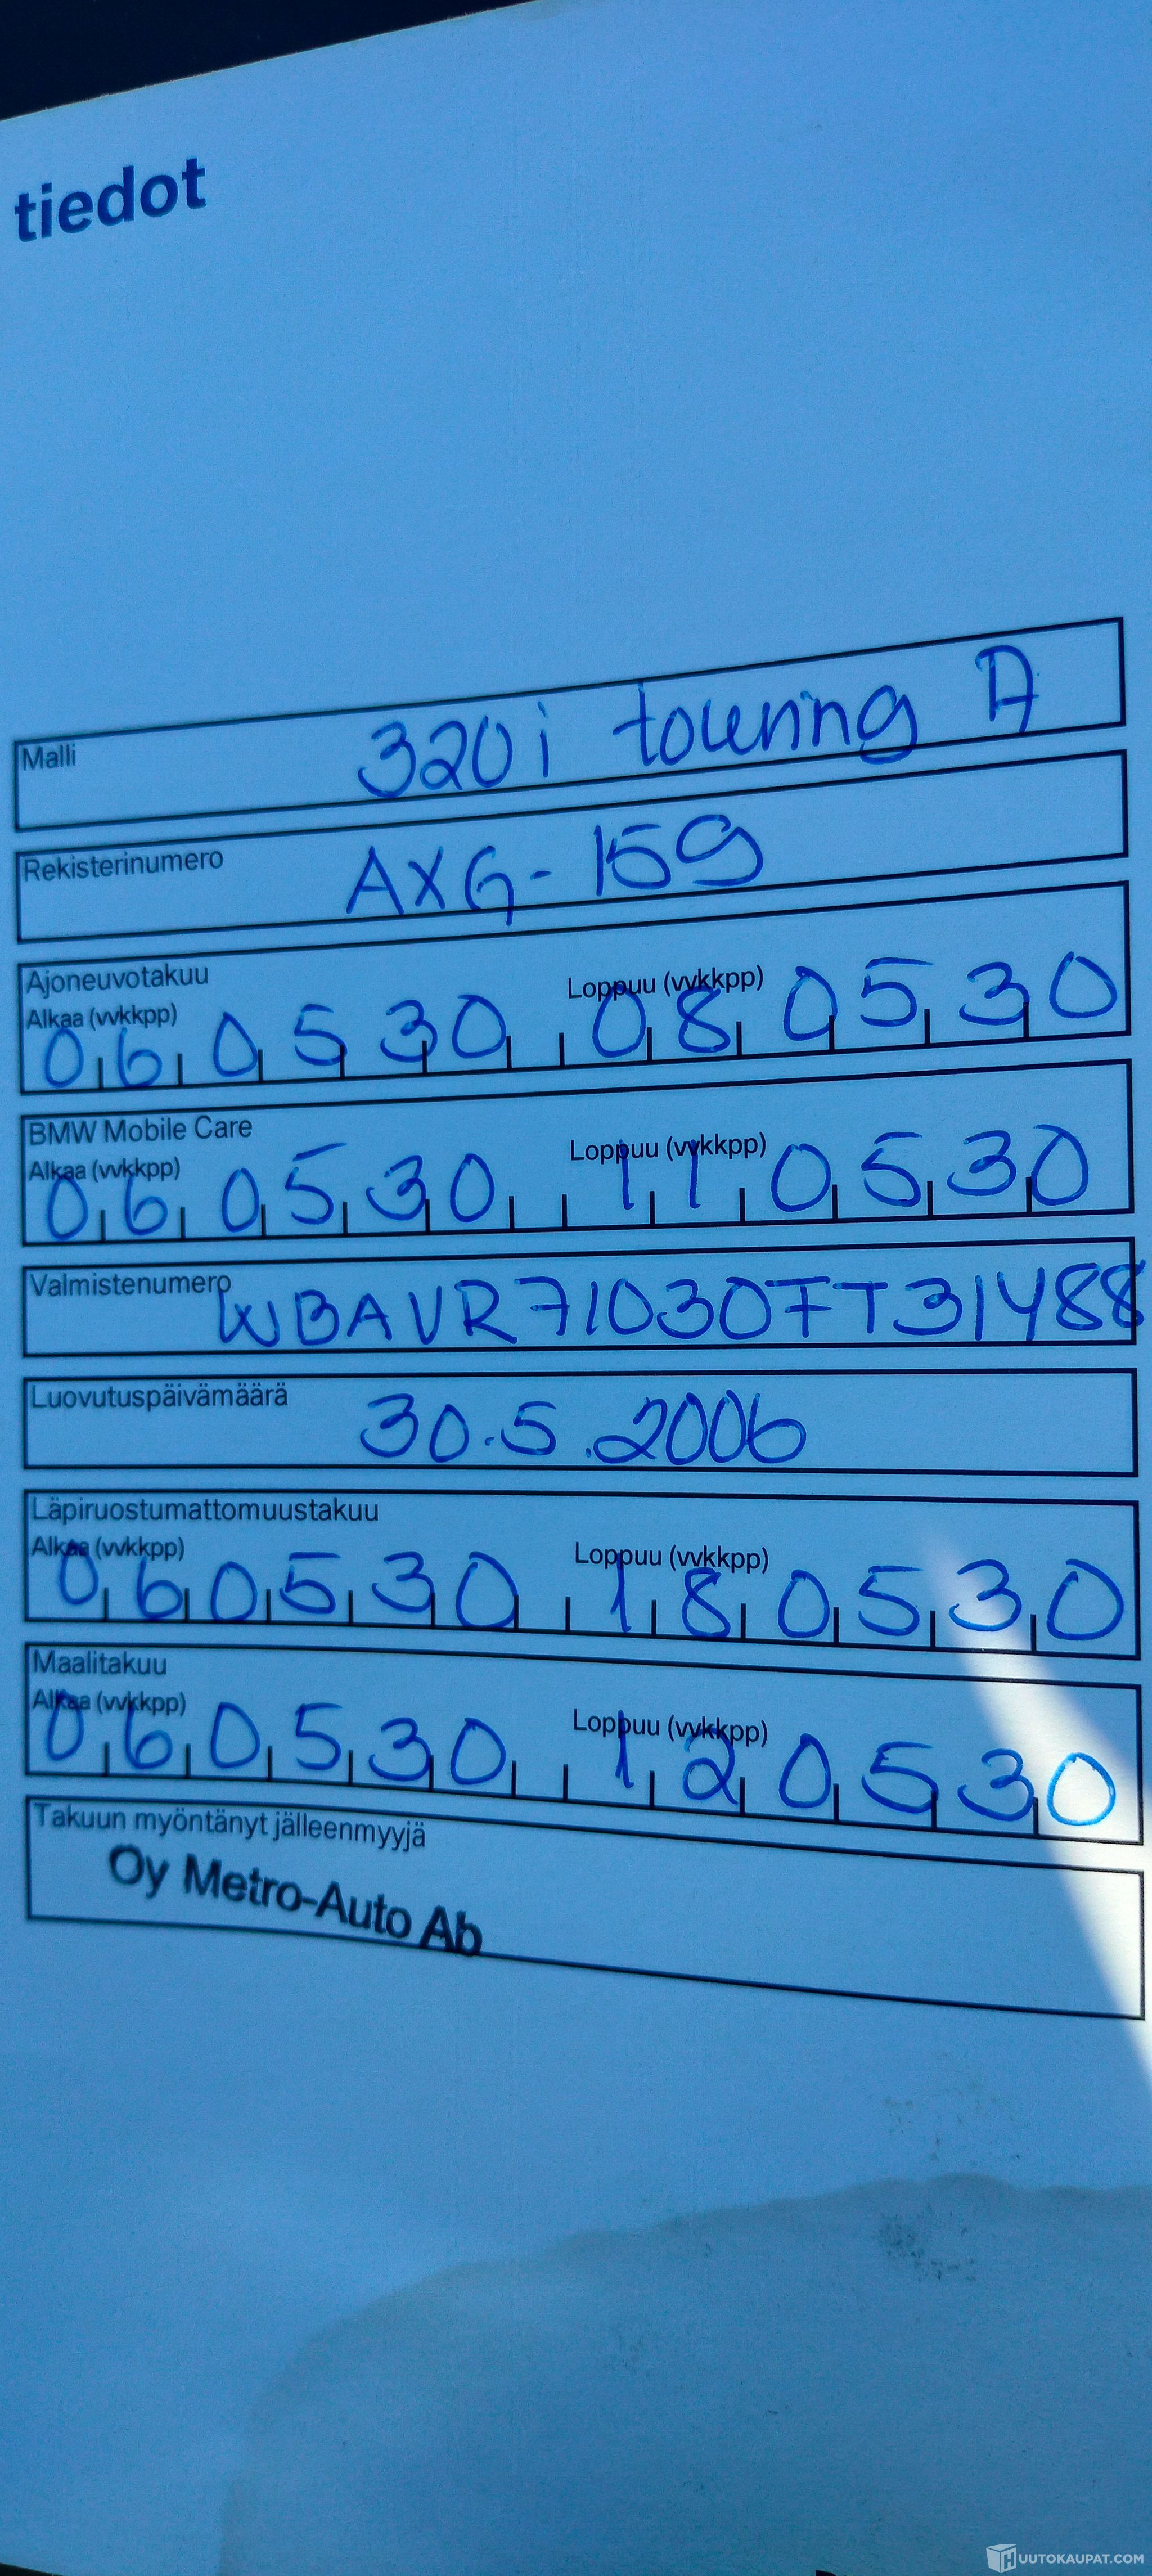 tiedot
Malli 320i touring A
Rekisterinumero AXG-159
Ajoneuvotakuu
Alkaa (vvkkpp) Loppuu (vvkkpp)
060530 080530
BMW Mobile Care
Alkaa (vvkkpp) Loppuu (vvkkpp)
060530 110530
Valmistenumero WBAVR71030FT31488
Luovutuspäivämäärä 30.5.2006
Läpiruostumattomuustakuu
Alkaa (vvkkpp) Loppuu (vvkkpp)
060530 180530
Maalitakuu
Alkaa (vvkkpp) Loppuu (vvkkpp)
060530 120530
Takuun myöntänyt jälleenmyyjä
Oy Metro-Auto Ab
HUUTOKAUPAT.COM